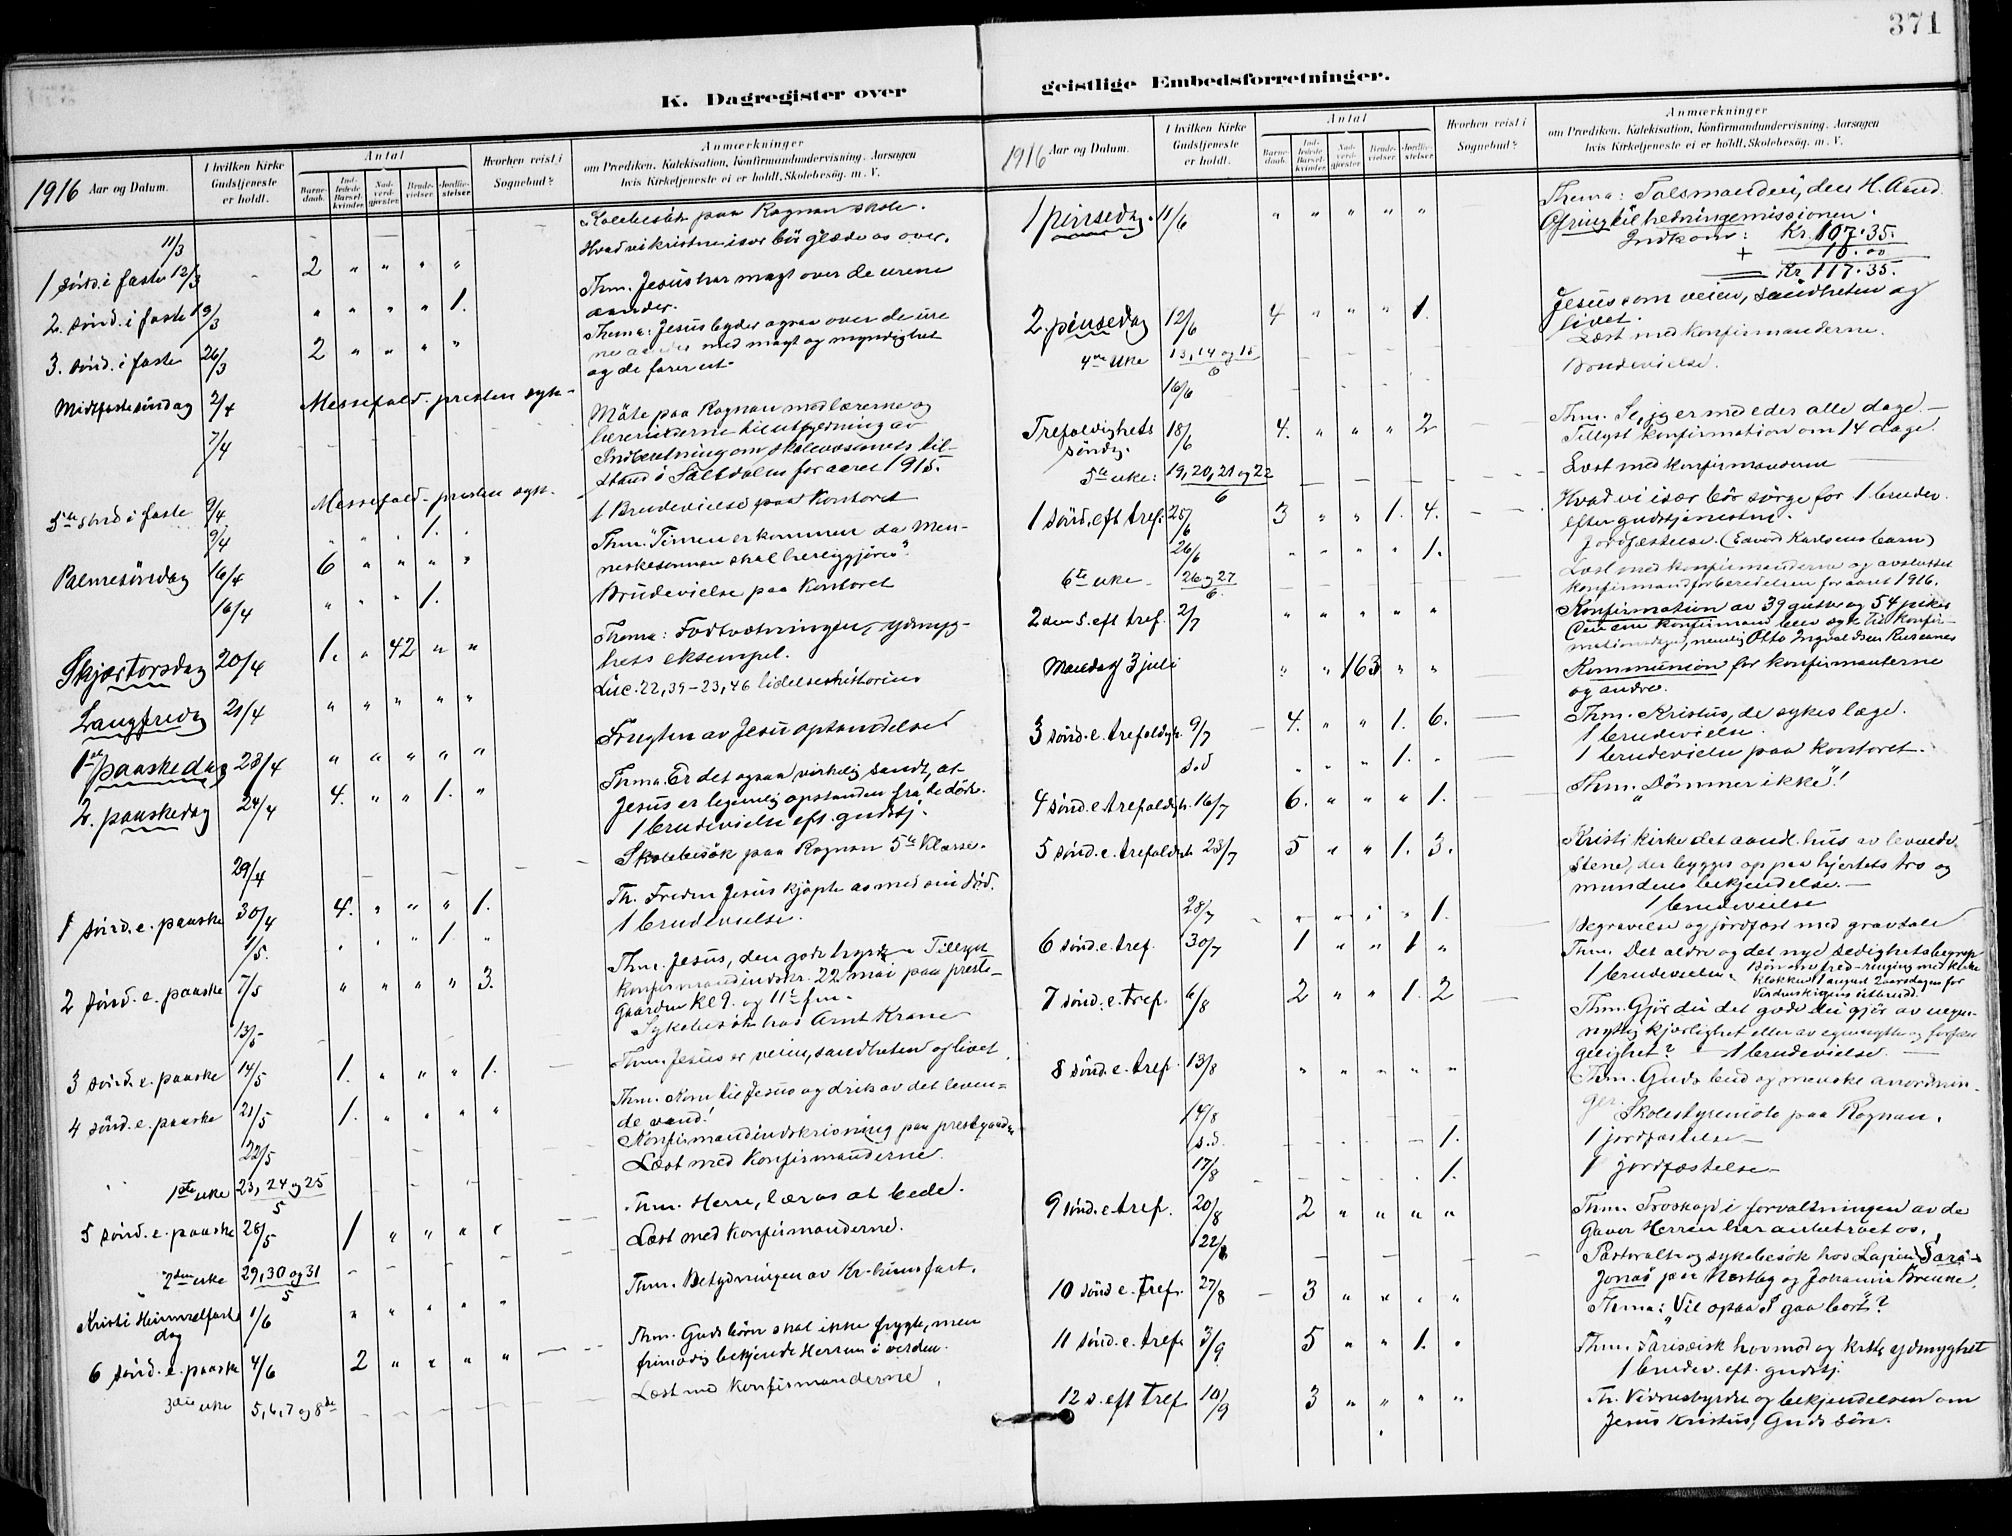 371
K. Dagregister over
geistlige Embedsforretninger.
1916 Aar og Datum.
I hvilken Kirke Gudstjeneste er holdt.
Antal
Barne-daab.
Ind-ledede Barsel-kvinder.
Nad-verd-gjester.
Brude-vielser.
Jordfæ-stelser.
Hvorhen reist i Sognebud?
Anmærkninger
om Prædiken, Katekisation, Konfirmandundervisning. Aarsagen
hvis Kirketjeneste ei er holdt. Skolebesøg. m. V.
11/3 Skolebesök paa Rognan skole.
1 sönd. i faste 12/3 2 " " " " Hvad vi kristne især bör glæde os over.
2. sönd. i faste 19/3 " " " " 1. Thm. Jesus har magt over de urene
aander.
3. sönd. i faste 26/3 2 " " " " Thema: Jesus byder ogsaa over de ure
ne aander med magt og myndighet
og de farer ut.
Midtfastesöndag 2/4 Messefald. presten syk.
7/4 Möte paa Rognan med lærerne og
lærerinderne til utfyldning av
Indberetning om skolevæsenets til-
stand i Saltdalen for aaret 1915.
5te sönd i faste 9/4 Messefald. presten syk.
9/4 1. 1 Brudevielse paa Kontoret
Palmesöndag 16/4 6 " " " " Thm. "Timen er kommen da Men-
neskesönnen skal herliggjöres"
16/4 " " " 1. Brudevielse paa Kontoret
Skjærtorsdag 20/4 1. " 42 " " Thema: Fodtvætningen, ydmyg-
hets eksempel.
Langfredag 21/4 " " " " " Luc. 22,39-23,46 lidelseshistorien
1ste paaskedag 23/4 " " " " " Frugten av Jesu opstandelse
2. paaskedag 24/4 4. " " 1. " Thema Er det ogsaa virkelig sandt, at
Jesus er legemlig opstanden fra de döde.
1 brudevielse eft. gudstj.
29/4 Skolebesök paa Rognan 5te Klasse.
1 sönd. e. paaske 30/4 4. " " " 1. Th. Freden Jesus kjöpte os med sin död.
1/5. " " " 1 " 1 brudevielse.
2 sönd. e. paaske 7/5 " " " " 3. Thm. Jesus, den gode hyrde Tillyst
Konfirmandindskr. 22 mai paa preste-
gaarden kl 9. og 11 fm.
13/5 Sykebesök hos Arnt Krane
3 sönd. e. paaske 14/5 1. " " " 1. Thm. Jesus er veien, sandheten og livet
4 sönd. e. paaske 21/5 1. " " " " Thm. Kom til Jesus og drik av det leven-
de vand!
22/5 Konfirmandindskrivning paa prestgaarden
1ste uke 23, 24 og 25/5 Læst med Konfirmanderne.
5 sönd. e. paaske 28/5 1 " " " " Thm. Herre, lær os at bede.
2den uke 29, 30 og 31/5 Læst med Konfirmanderne.
Kristi Himmelfarts dag 1/6 " " " " " Thm. Betydningen av Kr-himlfart.
6 sönd. e. paaske 4/6 2 " " " " Thm. Guds börn skal ikke frygte, men
frimodig bekjende Herren i verden.
3die uke 5, 6, 7 og 8de Læst med Konfirmanderne.
1916 Aar og Datum.
I hvilken Kirke Gudstjeneste er holdt.
Antal
Barne-daab.
Ind-ledede Barsel-kvinder.
Nad-verd-gjester.
Brude-vielser.
Jordfæ-stelser.
Hvorhen reist i Sognebud?
Anmærkninger
om Prædiken, Katekisation, Konfirmandundervisning. Aarsagen
hvis Kirketjeneste ei er holdt. Skolebesøg. m. V.
1 pinsedag. 11/6 " " " " " Thema: Talsmanden, den H. Aand.
Ofring til hedningemissionen.
Indkom: Kr. 107.35.
+ 10.00
Kr. 117.35.
2. pinsedag 12/6 4 " " " 1. Jesus som veien, sandheten og
livet.
4de uke 13, 14 og 15/6 Læst med Konfirmanderne.
16/6 Brudevielse.
Trefoldighets söndag. 18/6 4. " " " 2 Thm. Se, jeg er med eder alle dage.
Tillyst konfirmation om 14 dage.
5te uke: 19, 20, 21 og 22/6 Læst med konfirmanderne
1 sönd. eft tref. 25/6 3 " " 1. 4. Hvad vi især bör sörge for 1 brudev.
efter gudstjenesten.
26/6 " " " " 1. Jordfæstelse. (Edvard Karlsens barn)
6te uke 26 og 27/6. Læst med konfirmanderne og avsluttet
konfirmandforberedelsen for aaret 1916.
2den s. eft tref. 2/7 " " " " " Konfirmation av 39 gutter og 54 piker
mationsdagen, nemlig Otto Ingvaldsen
Mandag 3 juli " " 163 " " Kommunion for konfirmanterne
og andre.
3 sönd. e. trefoldgh. 9/7 4. " " 1. 6. Thm. Kristus, de sykes læge.
1 brudevielse.
s.d " " " 1. " 1 brudevielse paa Kontoret.
4 sönd. e trefoldgh. 16/7 6. " " " 1. Thm. "Dömmer ikke"!
5 sönd. e. trefoldgh. 23/7 5 " " 1. 3. Kristi kirke det aandl. hus av levende
stene, der bygges op paa hjertets tro og
mundens bekjendelse.
1 brudevielse
28/7 " " " " 1. Begravelse og jordfæst med gravtale
6 sönd. e. tref. 30/7 1 " " 1 " Thm. Det ældre og det nye retfærdighetsbegrep
1 brudevielse. Bön om fred-ringing med kirke
klokken 1 august 2 aarsdagen for
7 sönd. e. tref. 6/8 2 " " 1. 2 Thm. Gjör du det gode du gjör av uegen-
nyttig kjærlighet eller av egennytte og forfæn
gelighet? 1 brudevielse.
8 sönd. e. tref. 13/8 " " " " " Thm. Guds bud og menske anordnin-
ger.
14/8 Skolestyremöte paa Rognan.
s.d. 1. 1 jordfæstelse
17/8 1. 1 jordfæstelse
9 sönd. e. tref. 20/8 2 " " " " Thm. Troskap i forvaltningen av de
Gaver Herren har anbetroet os.
22/8 Pastoralt- og sykebesök hos Lapin Sara
Jonas paa Næstlag og Johanna Brenne.
10 sönd e. tref. 27/8 3 " " " " Thema: Vil ogsaa I gaa bort?
11 sönd. e. tref. 3/9 5 " " 1. " Thm. Farisæisk hovmod og kristl. ydmyghet
1 brudev. eft. gudstj.
12 s. eft tref. 10/9 3 " " " " Th. Vidnesbyrdet og bekjendelsen om
Jesus Kristus, Guds sön.